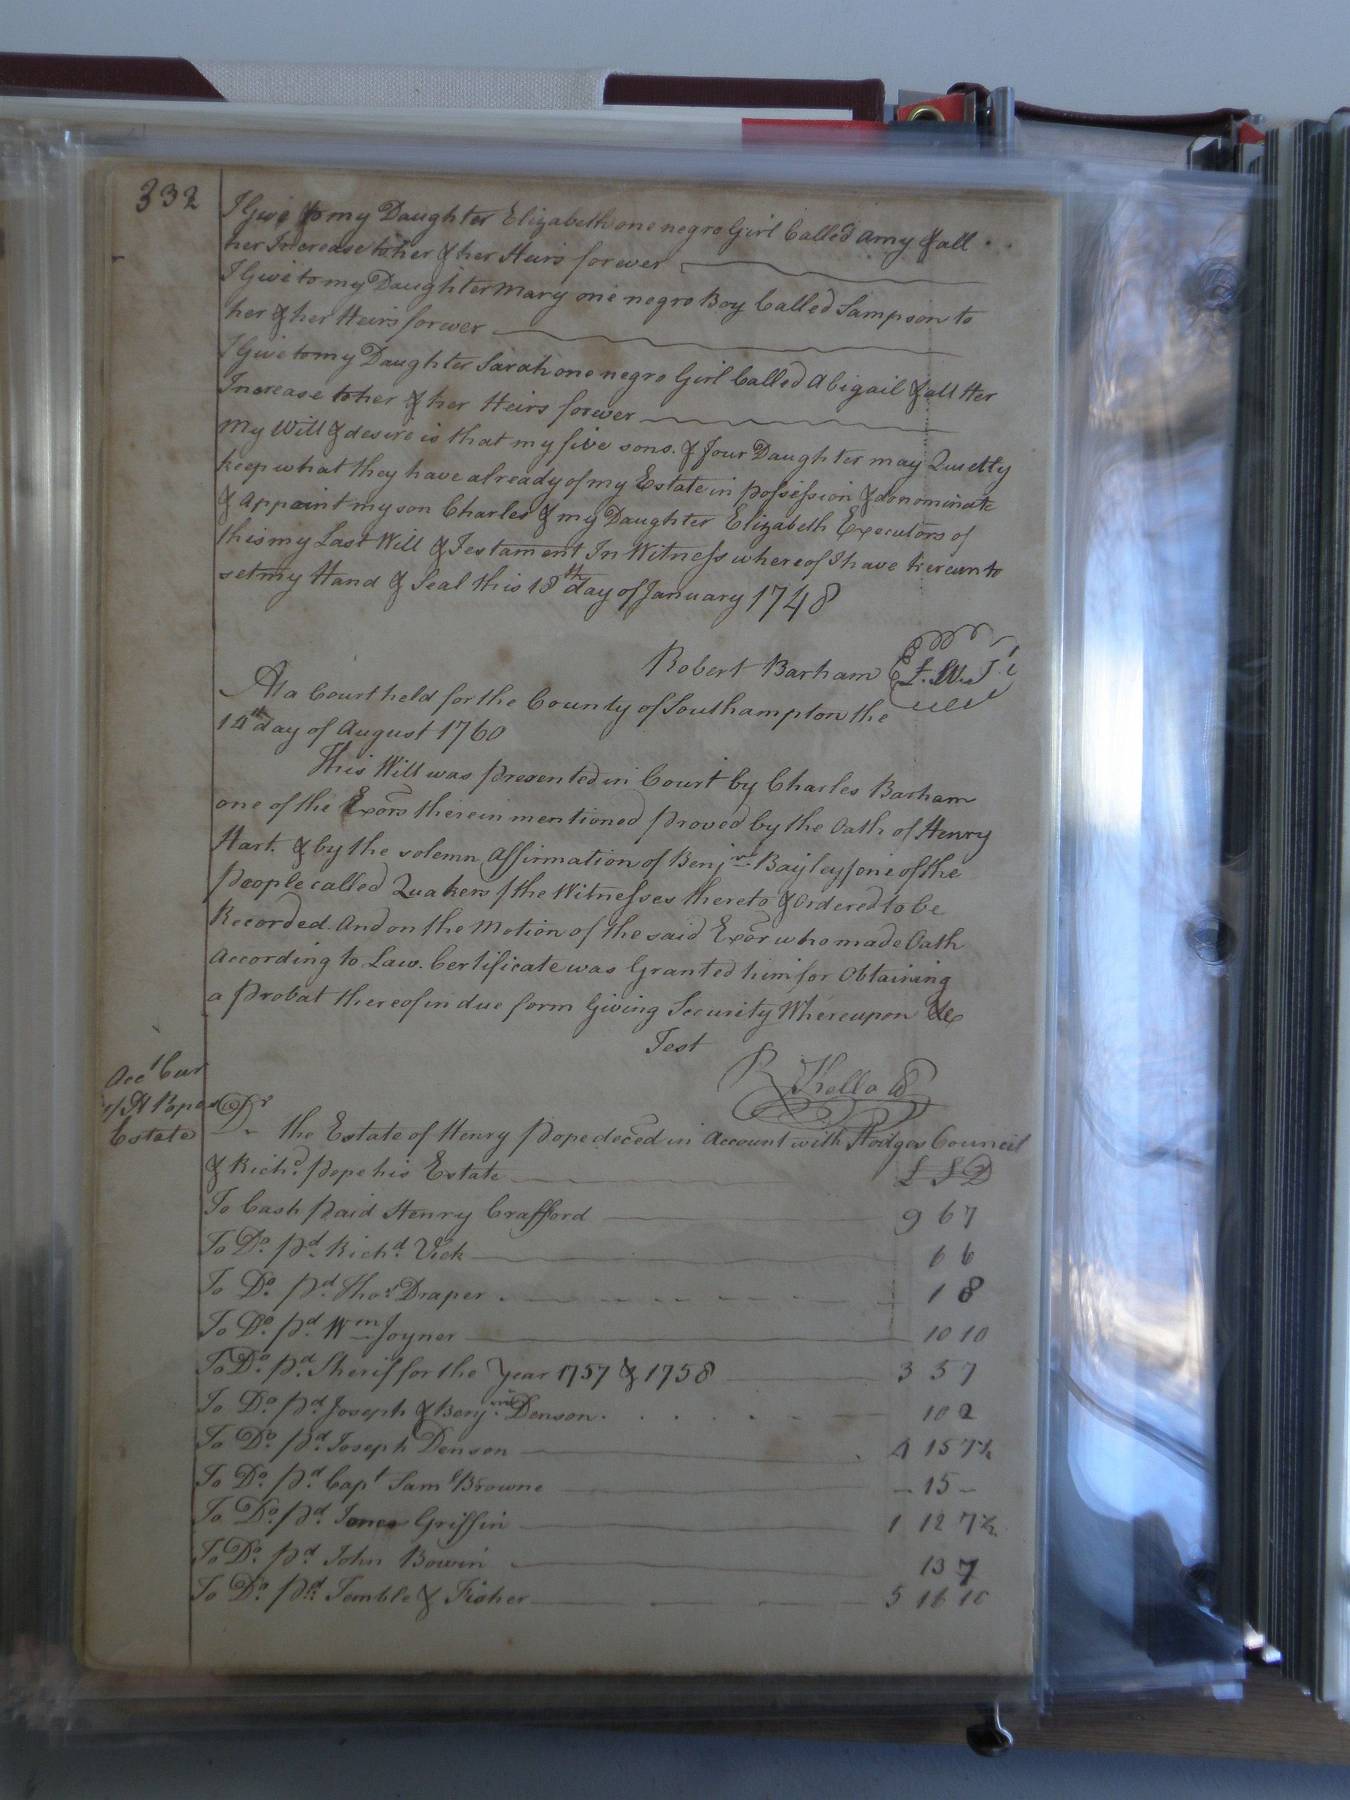 332
I Give to my Daughter Elizabeth one negro Girl Called Amy & all
her Increase to her & her Heirs forever
I Give to my Daughter Mary one negro Boy Called Sampson to
her & her Heirs forever
I Give to my Daughter Sarah one negro Girl Called Abigail & all Her
Increase to her & her Heirs forever
My Will & desire is that my five sons & four Daughter may Quietly
keep what they have already of my Estate in possession & do nominate
& appoint my son Charles & my Daughter Elizabeth Executors of
this my Last Will & Testament In Witness whereof I have hereunto
set my Hand & Seal this 18th day of January 1748
Robert Barham
At a Court held for the County of Southampton the
14th day of August 1760
This Will was presented in Court by Charles Barham
one of the Exors therein mentioned proved by the Oath of Henry
Hart. & by the solemn Affirmation of Benjn Bayley/one of the
People called Quakers/the Witnesses thereto & Ordered to be
Recorded. And on the Motion of the said Exor who made Oath
According to Law. Certificate was Granted him for Obtaining
a Probat thereof in due form Giving Security Whereupon &c
Test
R Kello
Acct Cur
H Popes
Estate
Dr the Estate of Henry Pope deced in Account with Hodges Council
& Richd. Pope his Estate £ S D
To Cash Paid Henry Crafford 9 6 7
To Do. pd. Richd. Vick 6 6
To Do. pd. Thos Draper 1 8
To Do. pd. Wm Joyner 10 10
To Do. pd. Sherif for the Year 1757 & 1758 3 5 7
To Do. pd. Joseph & Benjmn Denson 10 2
To Do. pd. Joseph Denson 4 15 7½
To Do. pd. Capt Saml Browne - 15 -
To Do. pd. Jones Griffin 1 12 7½
To Do. pd. John Bowin 13 7
To Do. pd. Temble & Fisher 5 16 10